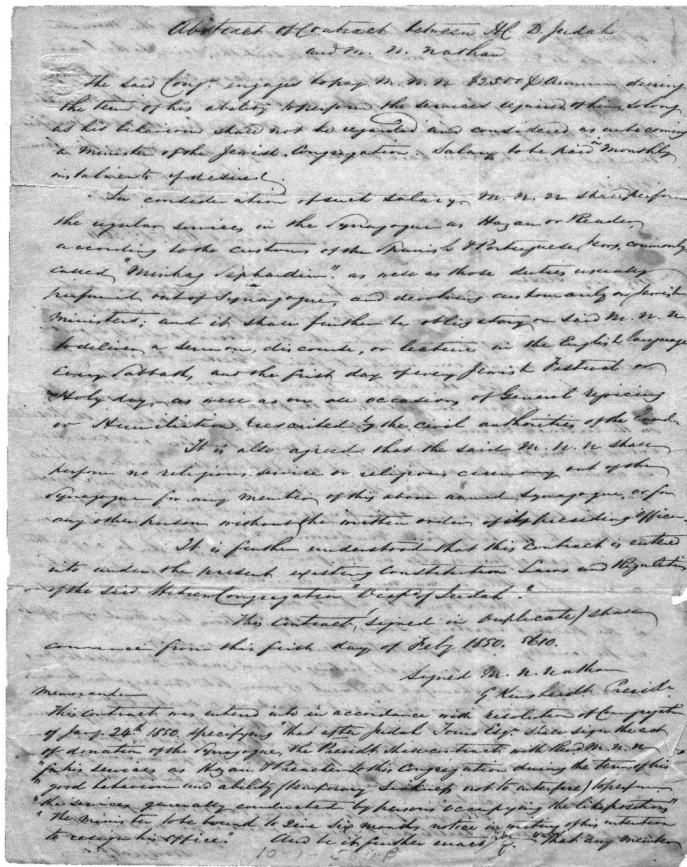 Abstract of Contract between H.C. D. Judah
and M. N. Nathan
The said Congn. engages to pay M. N. N $2500 ⅌ Annum during
the term of his ability to perform the services required of him, so long
as his behaviour shall not be regarded and considered as unbecoming
a Minister of the Jewish Congregation. Salary to be paid in Monthly
instalments if desired.
In consideration of such salary, M. N. N shall perform
the regular services in the Synagogue as Hazan or Reader,
according to the customs of the Spanish & Portuguese Jews, commonly
called, "Minhag Sephardim" as well as those duties usually
performed out of Synagogue, and devolving customarily on Jewish
Ministers; and it shall further be obligatory on said M. N. N
to deliver a sermon, discourse, or lecture in the English language
every Sabbath, and the first day of every Jewish Festival or
Holy day, as well as on all occasions of General rejoicing
or Humiliation prescribed by the civil authorities of the land.
It is also agreed that the said M. N. N shall
perform no religious service or religious ceremony out of the
Synagogue for any member of this above named Synagogue, or for
any other person without the written order of its presiding officer.
It is further understood that this Contract is entered
into under the present existing Constitution Laws and Regulations
of the said Hebrew Congregation "Disp. of Judah".
This Contract, (signed in duplicate) shall
commence from this first day of Feby 1850. 5610.
Signed M. N. Nathan
G Kursheedt Presidt.
Memorandum
This Contract was entered into in accordance with resolution of Congregation
of Jany. 24th 1850, specifying "that after Judah Touro Esqr. shall sign the act
of donation of the Synagogue, the Presidt shall contract with Revd M. N. N
"for his services as Hazan & Preacher to this Congregation during the term of his
"good behaviour and ability (temporary sickness not to interfere) to perform
"the services generally conducted by persons occupying the like position"
"The Minister to be bound to give six months notice in writing of his intention
to resign his office." And be it further enacted that any member